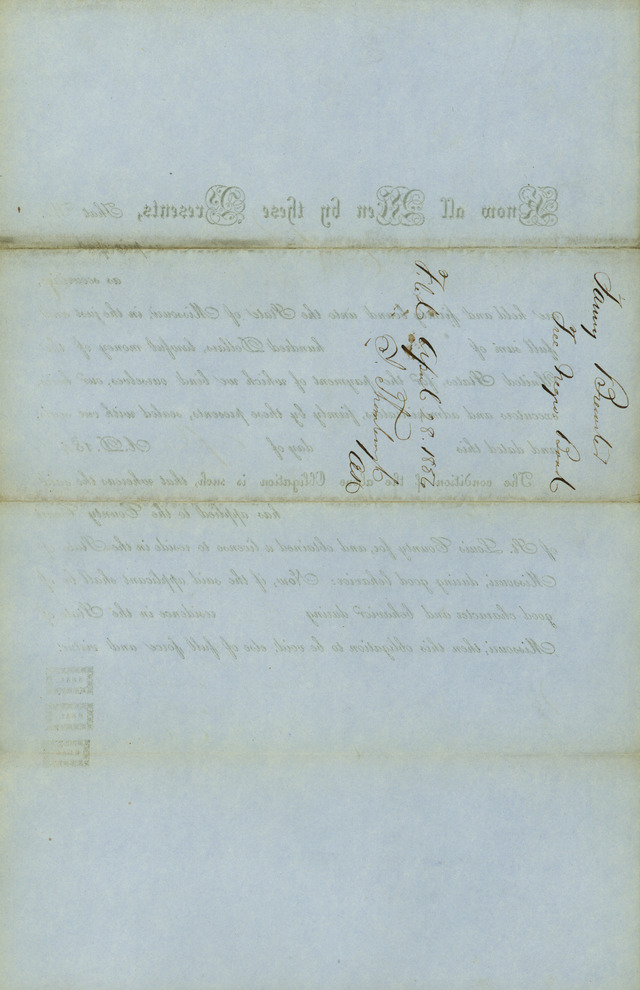 Fanny
Free Negro Bond
Filed April 28.
Know all Men by these Presents, That
as security,
held and firmly bound unto the State of Missouri, in the just and
full sum of hundred Dollars, lawful money of the
United States, the payment of which we bind ourselves, our heirs,
executors and administrators, firmly by these presents, sealed with our seals,
and dated this day of A.D. 18
The condition of the above Obligation is such, that whereas the said
has applied to the County Court
of St. Louis County for, and obtained a license to reside in the State of
Missouri, during good behavior: Now, if the said applicant shall be of
good character and behavior during residence in the State of
Missouri, then this obligation to be void, else of full force and virtue.
SEAL.
SEAL.
SEAL.